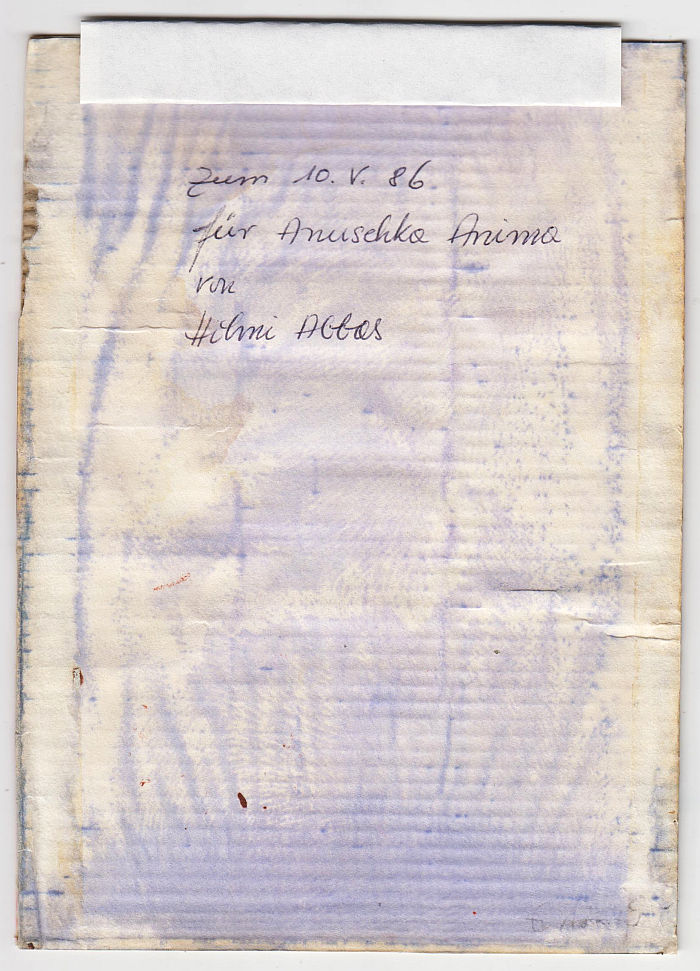 Zum 10. V. 86
für Anuschka Anima
von
Hilmi Abbas